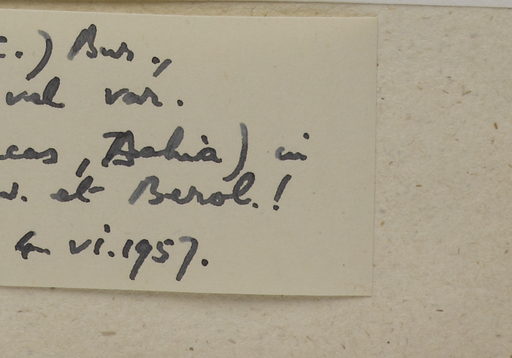 .) Bur.,
vel var.
cas, Bahia) in
v. et Berol.!
vi.1957.